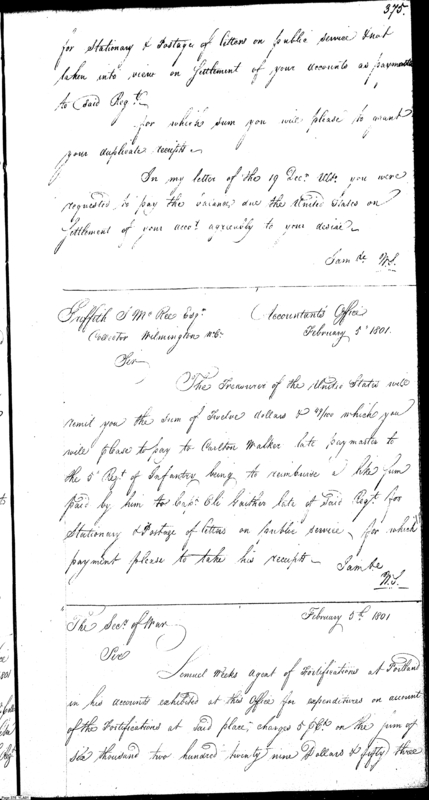 375.
for Stationary & Postage of letters on public service & not
taken into view on Settlement of your accounts as paymaster
to Said Regt.
for which sum you will please to
your duplicate receipts.
In my letter of the 19 Decr. Ulto. you were
requested to pay the balance due the United States on
Settlement of your acct. agreeably to your desire.
I am &c W.S.
Griffith J. McRee Esqr. Accountants Office
Collector Wilmington N.C. February 5' 1801.
Sir
The Treasurer of the United States will
remit you the sum of Twelve dollars & /100 which you
will please to pay to Carlton Walker late paymaster to
the 5' Regt. of Infantry being to reimburse a like sum
paid by him to Capt. Eli Gaither late of Said Regt. for
Stationary & Postage of letters on public service, for which
payment please to take his receipts. I am &c
W.S.
The Secy. of War February 5th. 1801
Sir
Lemuel Weeks agent of Fortifications at Portland
in his accounts exhibited at this Office for expenditures on account
of the Fortifications at said place, charges 5 pCt. on the sum of
six thousand two hundred twenty nine Dollars & fifty three